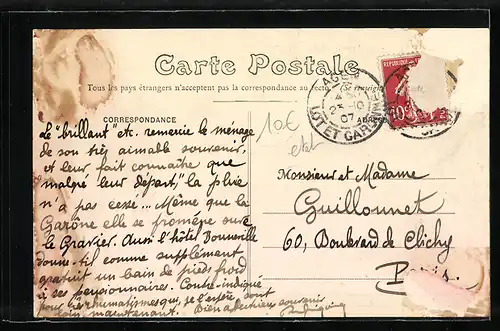 Carte Postale
Tous les pays étrangers n'acceptent pas la correspondance au recto
CORRESPONDANCE
Le "brillant" etc. remercie le ménage
de son très aimable souvenir
et leur fait connaître que
malgré leur départ, la pluie
n'a pas cessé... Même que la
Garône elle se promène sur
le Gravier. Aussi l'hôtel Bonneville
donne-t-il comme supplément
gratuit un bain de pieds froid
à ses pensionnaires. Contre-indiqué
pour les rhumatismes qui, je l'espère, sont
loin maintenant. Bien affectueux souvenir
10€
état
AGEN
10
07
LOT ET GARONNE
REPUBLIQUE
10
Monsieur et Madame
Guillonnet
60, Boulevard de Clichy
Paris